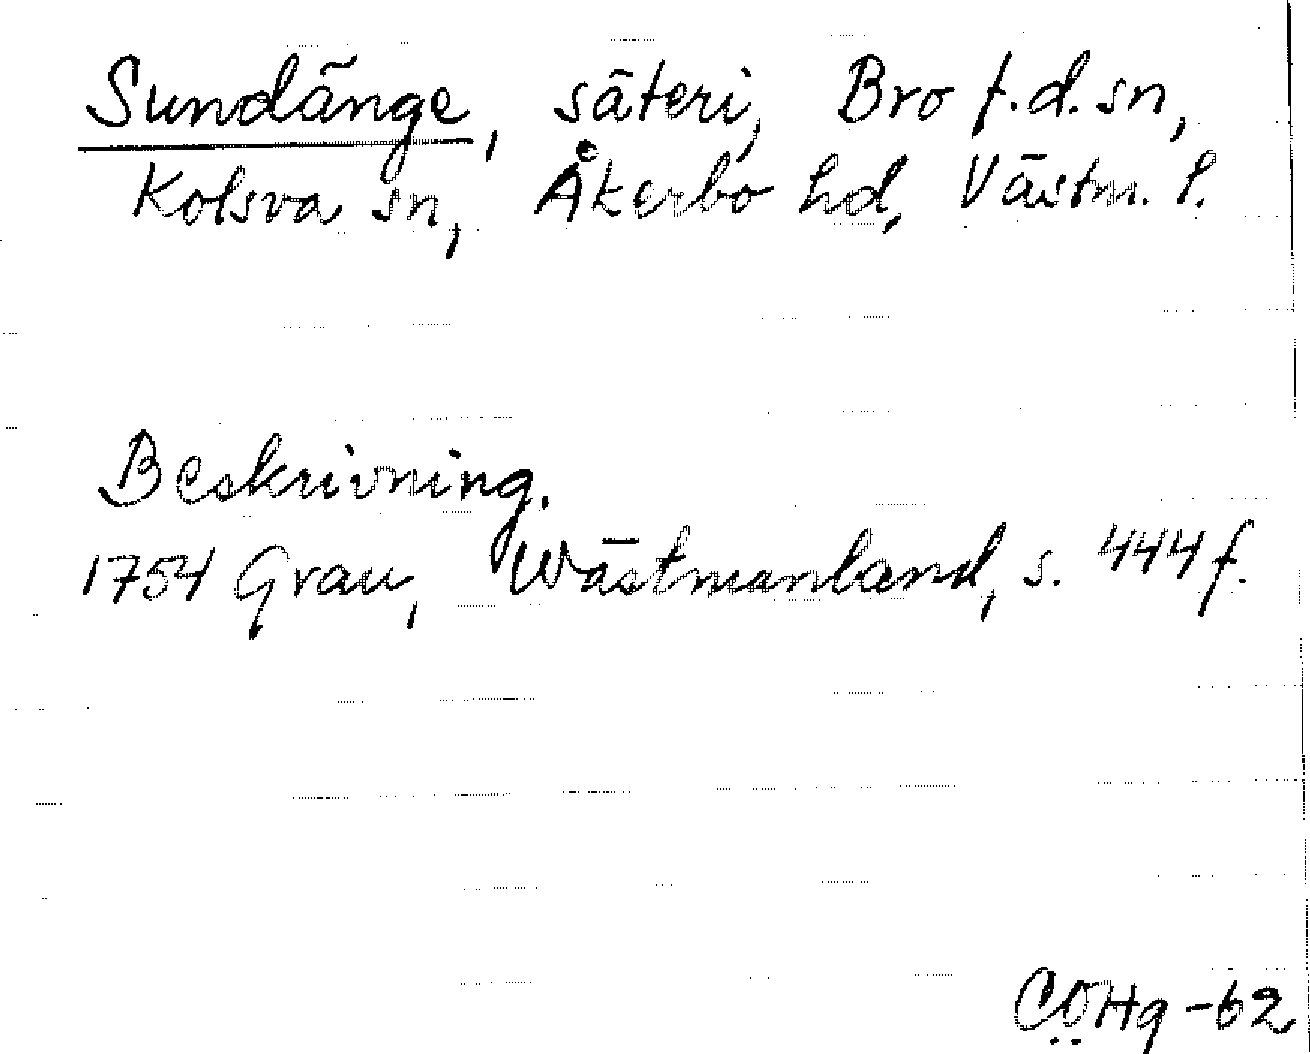 Sundänge, säteri, Bro f.d. sn,
Kolsva sn, Åkerbo hd, Västm. l.
Beskrivning.
1754 Grau, Wästmanland, s. 444 f.
CÖHg -62